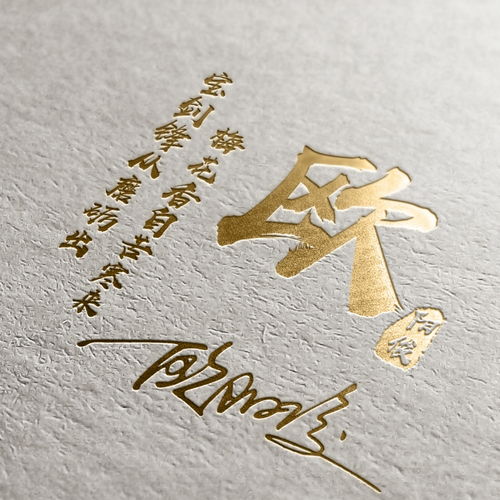 欧
阳俊
宝剑锋从磨砺出
梅花香自苦寒来